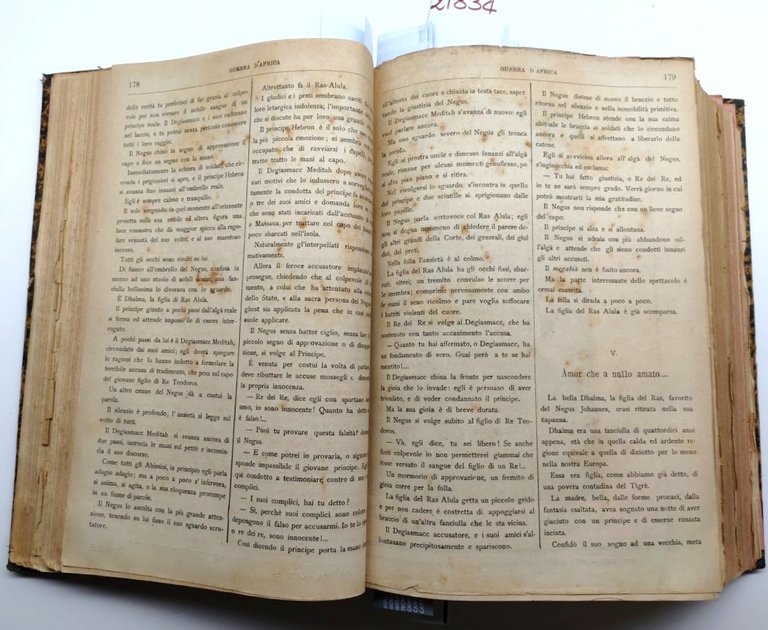 21834
178
GUERRA D'AFRICA
delle verità tu preferisci di far grazia al colpevole
per non versare il nobile sangue di un
principe reale. Il Degiasmacc e i suoi cadranno
nel laccio, e tu potrai senza pericolo conoscere
tutti i loro raggiri.
Il Negus chinò in segno di approvazione il
capo e fece un segno con la mano.
Immediatamente la schiera di soldati, che circonda
i prigionieri si apre, e il principe Hebron
si avanza fino innanzi all'ombrello reale.
Egli è sempre calmo e tranquillo.
Il sole sorgendo in quel momento all'orizzonte
proietta sulla sua nobile ed altera figura una
luce rossastra che dà maggior spicco alla regolare
venustà del suo volto, e al suo maestoso
incesso.
Tutti gli occhi sono rivolti su lui.
Di fianco all'ombrello del Negus, confusa in
mezzo ad uno stuolo di nobili donne, una fanciulla
bellissima lo divorava con lo sguardo.
È Dhalma, la figlia di Ras Alula.
Il principe giunto a pochi passi dall'algà reale
si ferma ed attende impassibile di essere interrogato.
A pochi passi da lui è il Degiasmacc Meditah,
circondato dai suoi amici; egli dovrà spiegare
le ragioni che lo hanno indotto a formolare la
terribile accusa di tradimento, che pesa sul capo
del giovane figlio di Re Teodoros.
Un altro cenno del Negus dà a costui la
parola.
Il silenzio è profondo; l'ansietà si legge sul
volto di tutti.
Il Degiasmacc Meditah si avanza ancora di
due passi, incrocia le mani sul petto e incomincia
il suo discorso.
Come tutti gli Abissini, in principio egli parla
adagio adagio; ma a poco a poco s'infervora,
si anima, si agita, e la sua eloquenza prorompe
in un fiume di parole.
Il Negus lo ascolta con la più grande attenzione,
tenendo su lui fisso il suo sguardo scrutatore.
Altrettanto fa il Ras-Alula.
I giudici e i preti sembrano usciti
loro letargica indolenza; l'importante
che si discute ha per loro una grande
Il principe Hebron è il solo che non
la più piccola emozione; ei sembra
occupato, che di ravviarsi i capelli
tratto tratto le mani al capo.
Il Degiasmacc Meditah dopo avere
vari motivi che lo indussero a sorvegliare
tamente la condotta del principe fa avanzare
o tre dei suoi amici e domanda loro se
che sono stati incaricati dall'accusato
a Massaua, per trattare col capo dei
poco sbarcati nell'isola.
Naturalmente gl'interpellati rispondono
mativamente.
Allora il feroce accusatore implacabile
prosegue, chiedendo che al colpevole di
mento, a colui che ha attentato alla
dello Stato, e alla sacra persona del Negus
ghest sia applicata la pena che in casi
suole applicare.
Il Negus senza batter ciglio, senza fare il
piccolo segno di approvazione o di disapprovazione,
si volge al Principe.
È venuta per costui la volta di parlare
deve ributtare le accuse mossegli e dimostrare
la propria innocenza.
— Re dei Re, dice egli con spartano
smo, io sono innocente! Quanto ha detto
è falso!...
— Puoi tu provare questa falsità? domanda
il Negus.
— E come potrei io provarla, o signore?
sponde impassibile il giovane principe. Egli
qui condotto a testimoniare contro di me
complici.
— I suoi complici, hai tu detto?
— Sì, perchè suoi complici sono coloro
depongono il falso per accusarmi. Io te lo
o re dei re, sono innocente!...
Così dicendo il principe porta la mano
GUERRA D'AFRICA
179
all'altezza del cuore e chinata la testa tace, aspettando
la giustizia del Negus.
Il Degiasmacc Meditah s'avanza di nuovo: egli
vuol parlare ancora.
Ma uno sguardo severo del Negus gli tronca
la parola.
Egli si prostra umile e dimesso innanzi all'algà
reale, rimane per alcuni momenti genuflesso, poi
si alza pian piano e si ritira.
Nel rivolgersi lo sguardo, s'incontra in quello
del principe e due scintille si sprigionano dalle
loro pupille.
Il Negus parla sottovoce col Ras Alula; egli
non si degna nemmeno di chiedere il parere degli
altri grandi della Corte, dei generali, dei giudici,
dei preti.
Nella folla l'ansietà è al colmo.
La figlia del Ras Alula ha gli occhi fissi, sbarrati,
vitrei; un tremito convulso le scorre per
le membra; comprime nervosamente con ambo
le mani il seno ricolmo e pare voglia soffocare
i battiti violenti del cuore.
Il Re dei Re si volge al Degiasmacc, che ha
sostenuto con tanto accanimento l'accusa.
— Quanto tu hai affermato, o Degiasmacc, ha
un fondamento di vero. Guai però a te se hai
mentito!...
Il Degiasmacc china la fronte per nascondere
la gioia che lo invade: egli è persuaso di aver
trionfato, e di veder condannato il principe.
Ma la sua gioia è di breve durata.
Il Negus si volge subito al figlio di Re Teodoros.
— Và, egli dice, tu sei libero! Se anche
fosti colpevole io non permetterei giammai che
fosse versato il sangue del figlio di un Re!...
Un mormorio di approvazione, un fremito di
gioia corre per la folla.
La figlia del Ras Alula getta un piccolo grido
e per non cadere è costretta di appoggiarsi al
braccio di un'altra fanciulla che le sta vicina.
Il Degiasmacc accusatore, e i suoi amici s'allontanano
precipitosamente e spariscono.
Il Negus distese di nuovo il braccio e tutto
ritorna nel silenzio e nella immobilità primitiva.
Il principe Hebron stende con la sua calma
abituale le braccia ai soldati che lo circondano
ancora e quelli si affrettano a liberarlo della
catene.
Egli si avvicina allora all'algà del Negus,
s'inginocchia ed esclama:
— Tu hai fatto giustizia, o Re dei Re, ed
io te ne sarò sempre grato. Verrà giorno in cui
potrò mostrarti la mia gratitudine.
Il Negus non risponde che con un lieve segno
del capo.
Il principe si alza e si allontana.
Il Negus si sdraia con più abbandono sull'algà
e attende che gli sieno condotti innanzi
gli altri accusati.
Il megabià non è finito ancora.
Ma la parte interessante dello spettacolo è
ormai esaurita.
La folla si dirada a poco a poco.
La figlia del Ras Alula è già scomparsa.
V
Amor che a nullo amato....
La bella Dhalma, la figlia del Ras, favorito
del Negus Johannes, erasi ritirata nella sua
capanna.
Dhalma era una fanciulla di quattordici anni
appena, età che in quella calda ed ardente regione
equivale a quella di diciotto per lo meno
nella nostra Europa.
Essa era figlia, come abbiamo già detto, di
una povera contadina del Tigrè.
La madre, bella, dalle forme procaci, dalla
fantasia esaltata, avea sognato una notte di aver
giaciuto con un principe e di esserne rimasta
incinta.
Confidò il suo sogno ad una vecchia, meta